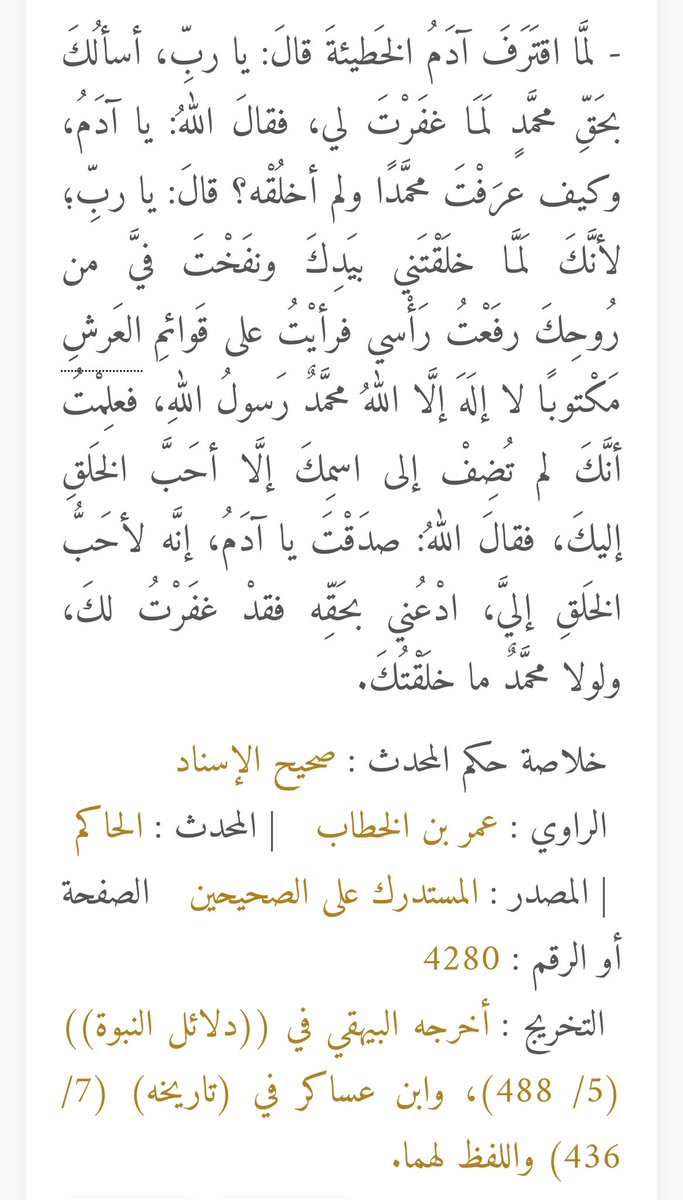 - لَمَّا اقتَرَفَ آدَمُ الخَطيئةَ قالَ: يا ربِّ، أسألُكَ
بحَقِّ محمَّدٍ لَمَا غفَرْتَ لي، فقالَ اللهُ: يا آدَمُ،
وكيف عرَفْتَ محمَّدًا ولم أخلُقْه؟ قالَ: يا ربِّ؛
لأنَّكَ لَمَّا خلَقْتَني بيَدِكَ ونفَخْتَ فيَّ من
رُوحِكَ رفَعْتُ رَأْسي فرأيْتُ على قَوائمِ العَرشِ
مَكْتوبًا لا إلَهَ إلَّا اللهُ محمَّدٌ رَسولُ اللهِ، فعلِمْتُ
أنَّكَ لم تُضِفْ إلى اسمِكَ إلَّا أحَبَّ الخَلقِ
إليكَ، فقالَ اللهُ: صدَقْتَ يا آدَمُ، إنَّه لأحَبُّ
الخَلقِ إليَّ، ادْعُني بحَقِّه فقدْ غفَرْتُ لكَ،
ولولا محمَّدٌ ما خلَقْتُكَ.
خلاصة حكم المحدث : صحيح الإسناد
الراوي : عمر بن الخطاب | المحدث : الحاكم
| المصدر : المستدرك على الصحيحين الصفحة
أو الرقم : 4280
التخريج : أخرجه البيهقي في ((دلائل النبوة))
(5/ 488)، وابن عساكر في (تاريخه) (7/
436) واللفظ لهما.